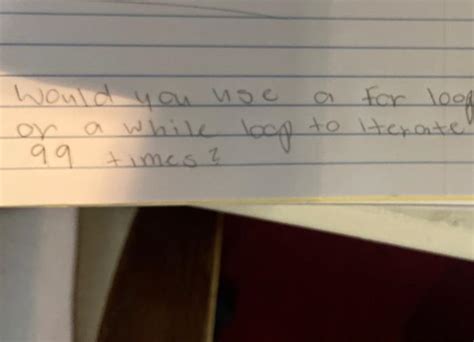 Would you use a for loop
or a while loop to iterate
99 times?